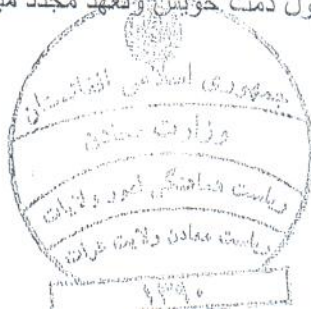 ول ذمت خویش وتعهد مجدد
جمهوری اسلامی افغانستان
وزارت معادن
ریاست هماهنگی امور ولایات
ریاست معادن ولایت هرات
۱۳۹۰